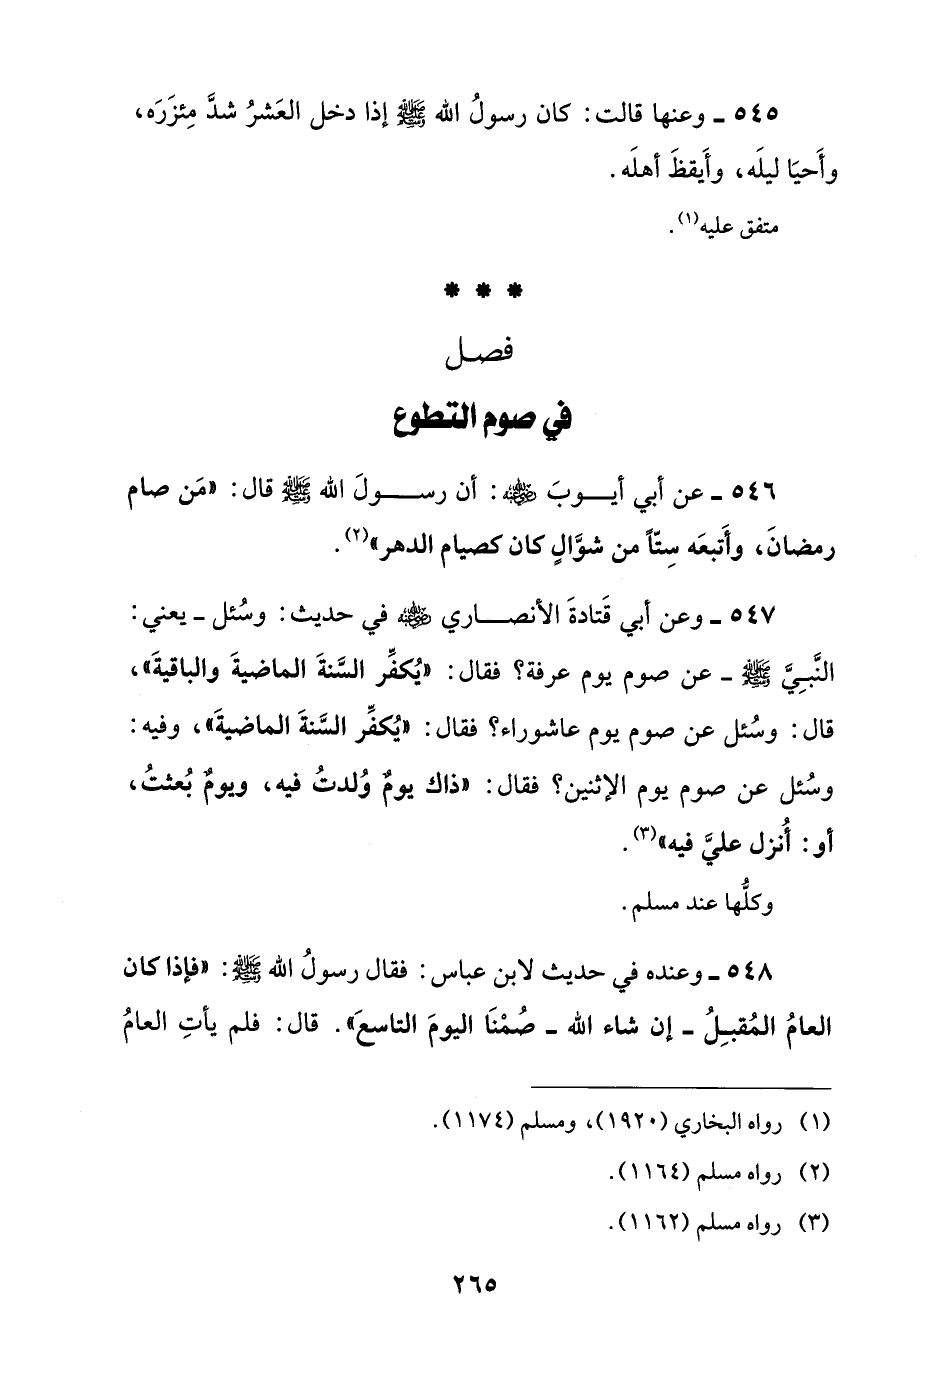 ٥٤٥ ـ وعنها قالت: كان رسولُ الله ﷺ إذا دخل العَشرُ شدَّ مِئزَرَه،
وأَحيَا ليلَه، وأَيقظَ أهلَه.
متفق عليه(١).
* * *
فصـل
في صوم التطوع
٥٤٦ ـ عن أبي أيـــوبَ رضي الله عنه: أن رســـــولَ الله ﷺ قال: «مَن صام
رمضانَ، وأَتبعَه سِتّاً من شوَّالٍ كان كصيام الدهر»(٢).
٥٤٧ ـ وعن أبي قَتادةَ الأنصـــاري رضي الله عنه في حديث: وسُئل ـ يعني:
النَّبِيَّ ﷺ ـ عن صوم يوم عرفة؟ فقال: «يُكفِّر السَّنةَ الماضيةَ والباقيةَ»،
قال: وسُئل عن صوم يوم عاشوراء؟ فقال: «يُكفِّر السَّنةَ الماضيةَ»، وفيه:
وسُئل عن صوم يوم الإثنين؟ فقال: «ذاك يومٌ وُلدتُ فيه، ويومٌ بُعثتُ،
أو: أُنزل عليَّ فيه»(٣).
وكلُّها عند مسلم.
٥٤٨ ـ وعنده في حديث لابن عباس: فقال رسولُ الله ﷺ: «فإذا كان
العامُ المُقبِلُ ـ إن شاء الله ـ صُمْنَا اليومَ التاسعَ». قال: فلم يأتِ العامُ
(١) رواه البخاري (١٩٢٠)، ومسلم (١١٧٤).
(٢) رواه مسلم (١١٦٤).
(٣) رواه مسلم (١١٦٢).
٢٦٥